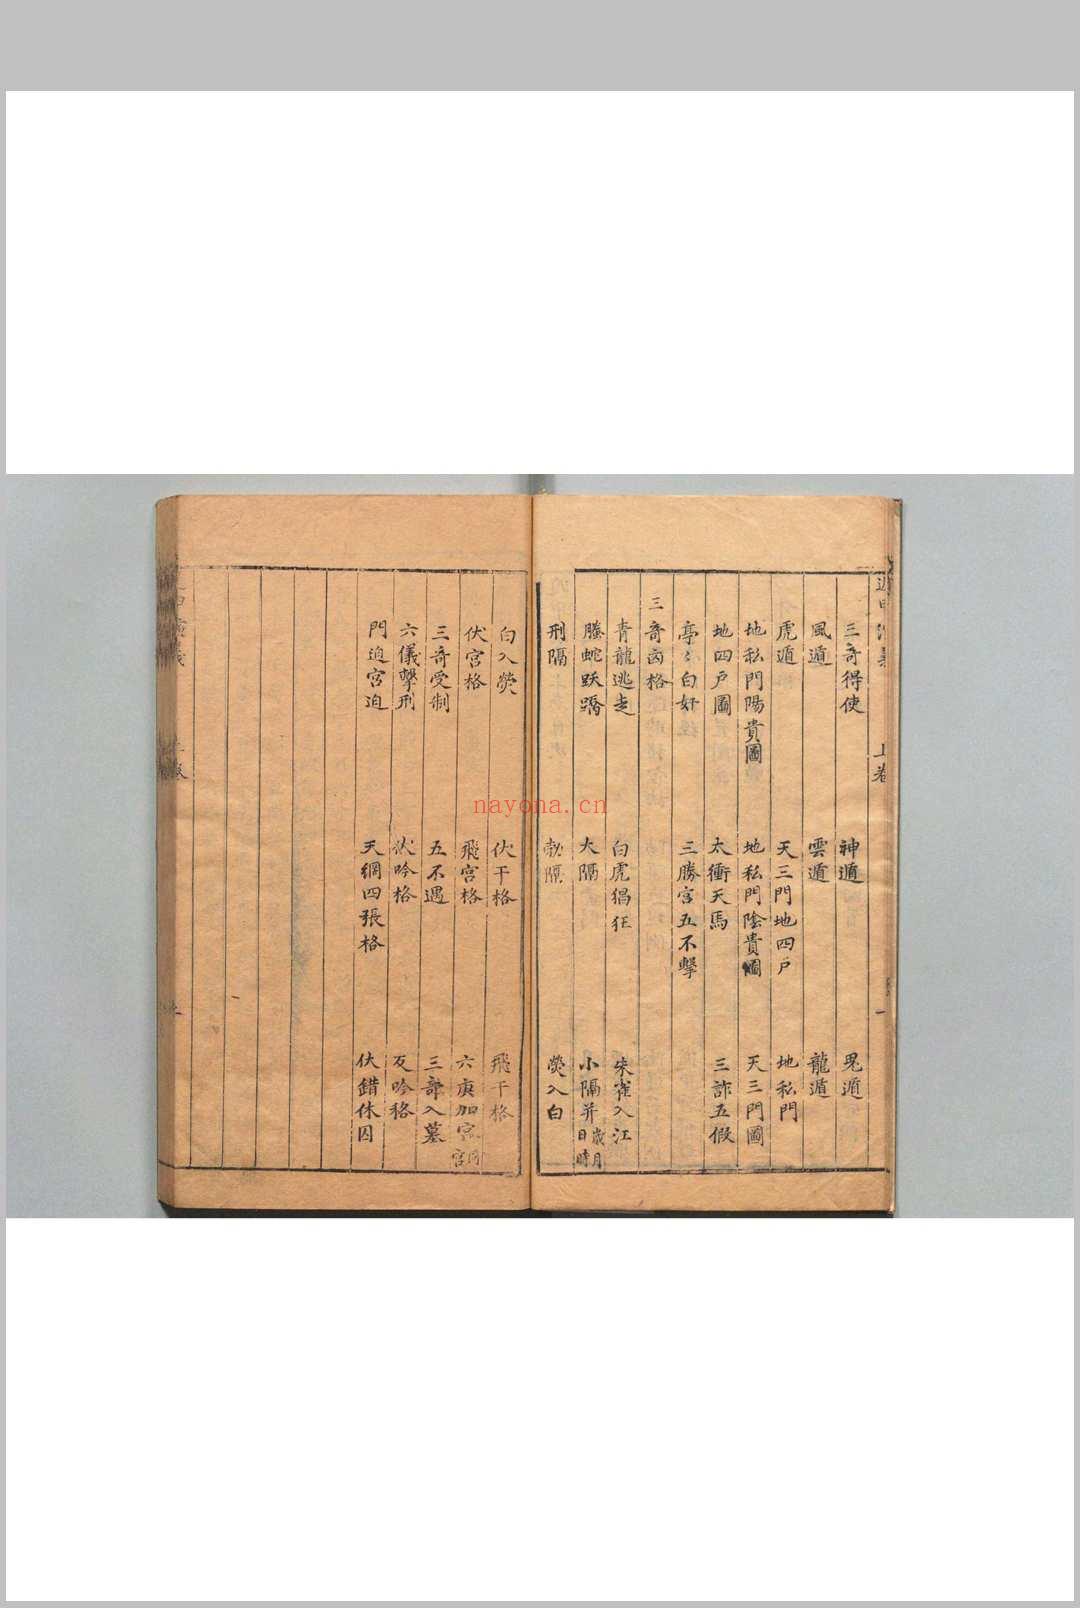 三竒得使 神遁 鬼遁
風遁 雲遁 龍遁
虎遁 天三門地四戶 地私門
地私門陽貴圖 地私門陰貴圖 天三門圖
地四戶圖 太衝天馬 三詐五假
亭〻白奸 三勝宮五不擊
三竒凶格
青龍逃走 白虎猖狂 朱雀入江
螣蛇跃蹻 大隔 小隔并歲月日時
刑隔 勃隔 熒入白
白入熒 伏干格 飛干格
伏宮格 飛宮格 六庚加宮
三竒受制 五不遇 三竒入墓
六儀擊刑 伏吟格 反吟格
門迫宮迫 天網四張格 伏錯休囚
上卷
nayona.cn